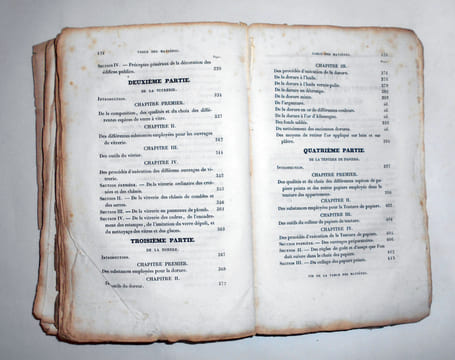 TABLE DES MATIÈRES.
SECTION IV. — Préceptes généraux de la décoration des
édifices publics.
DEUXIÈME PARTIE.
DE LA VITRERIE.
INTRODUCTION.
CHAPITRE PREMIER.
De la composition, des qualités et du choix des diffé-
rentes espèces de verre à vitre.
CHAPITRE II.
Des différentes substances employées pour les ouvrages
de vitrerie.
CHAPITRE III.
Des outils du vitrier.
CHAPITRE IV.
Des procédés d'exécution des différens ouvrages de vi-
trerie.
SECTION PREMIÈRE. — De la vitrerie ordinaire des croi-
sées et des châssis
SECTION II. — De la vitrerie des châssis de combles et
des serres.
SECTION III. — De la vitrerie en panneaux de plomb.
SECTION IV. — De la vitrerie des cadres, de l'encadre-
ment des estampes, de l'imitation du verre dépoli, et
du nettoyage des vitres et des glaces.
TROISIÈME PARTIE.
DE LA DORURE.
INTRODUCTION.
CHAPITRE PREMIER.
Des substances employées pour la dorure.
CHAPITRE II.
outils du doreur.
MATIÈRES.
CHAPITRE III.
Des procédés d'exécution de la dorure.
De la dorure à l'huile.
De la dorure à l'huile vernie-polie.
De la dorure en détrempe.
De la dorure mixte.
De l'argenture.
De la dorure en or de différentes couleurs.
De la dorure à l'or d'Allemagne.
Des fonds sablés.
Du nettoiement des anciennes dorures.
Des moyens de retirer l'or appliqué sur bois et sur
plâtre.
QUATRIÈME PARTIE.
DE LA TENTURE DE PAPIERS.
INTRODUCTION.
CHAPITRE PREMIER.
Des qualités et du choix des différentes espèces de pa-
piers peints et des autres papiers employés dans la
tenture des appartemens.
CHAPITRE II.
Des substances employées pour la Tenture de papier.
CHAPITRE III.
Des outils du colleur de papiers.
CHAPITRE IV.
Des procédés d'exécution de la Tenture de papiers.
SECTION PREMIÈRE. — Des ouvrages préparatoires.
SECTION II. — Des règles de goût et d'usage que l'on
doit suivre dans le choix des papiers.
SECTION III. — Du collage des papiers peints.
FIN DE LA TABLE DES MATIÈRES.